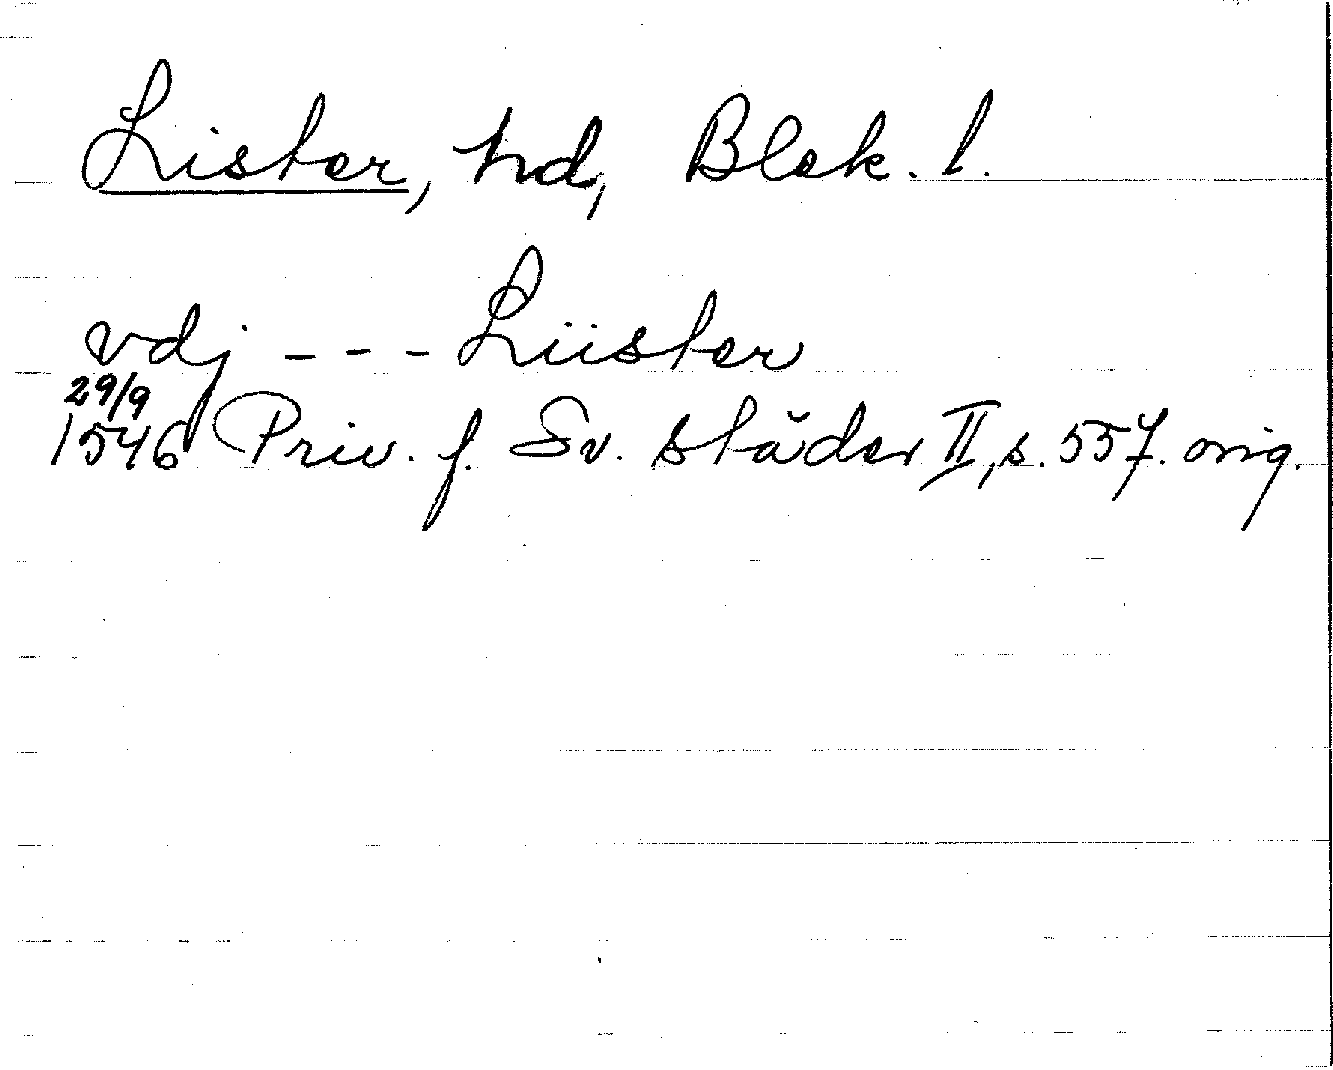 Lister, hd, Blek. l.
vdj - - - Liister
29/9
1546 Priv. f. Sv. städer II, s. 557. orig.